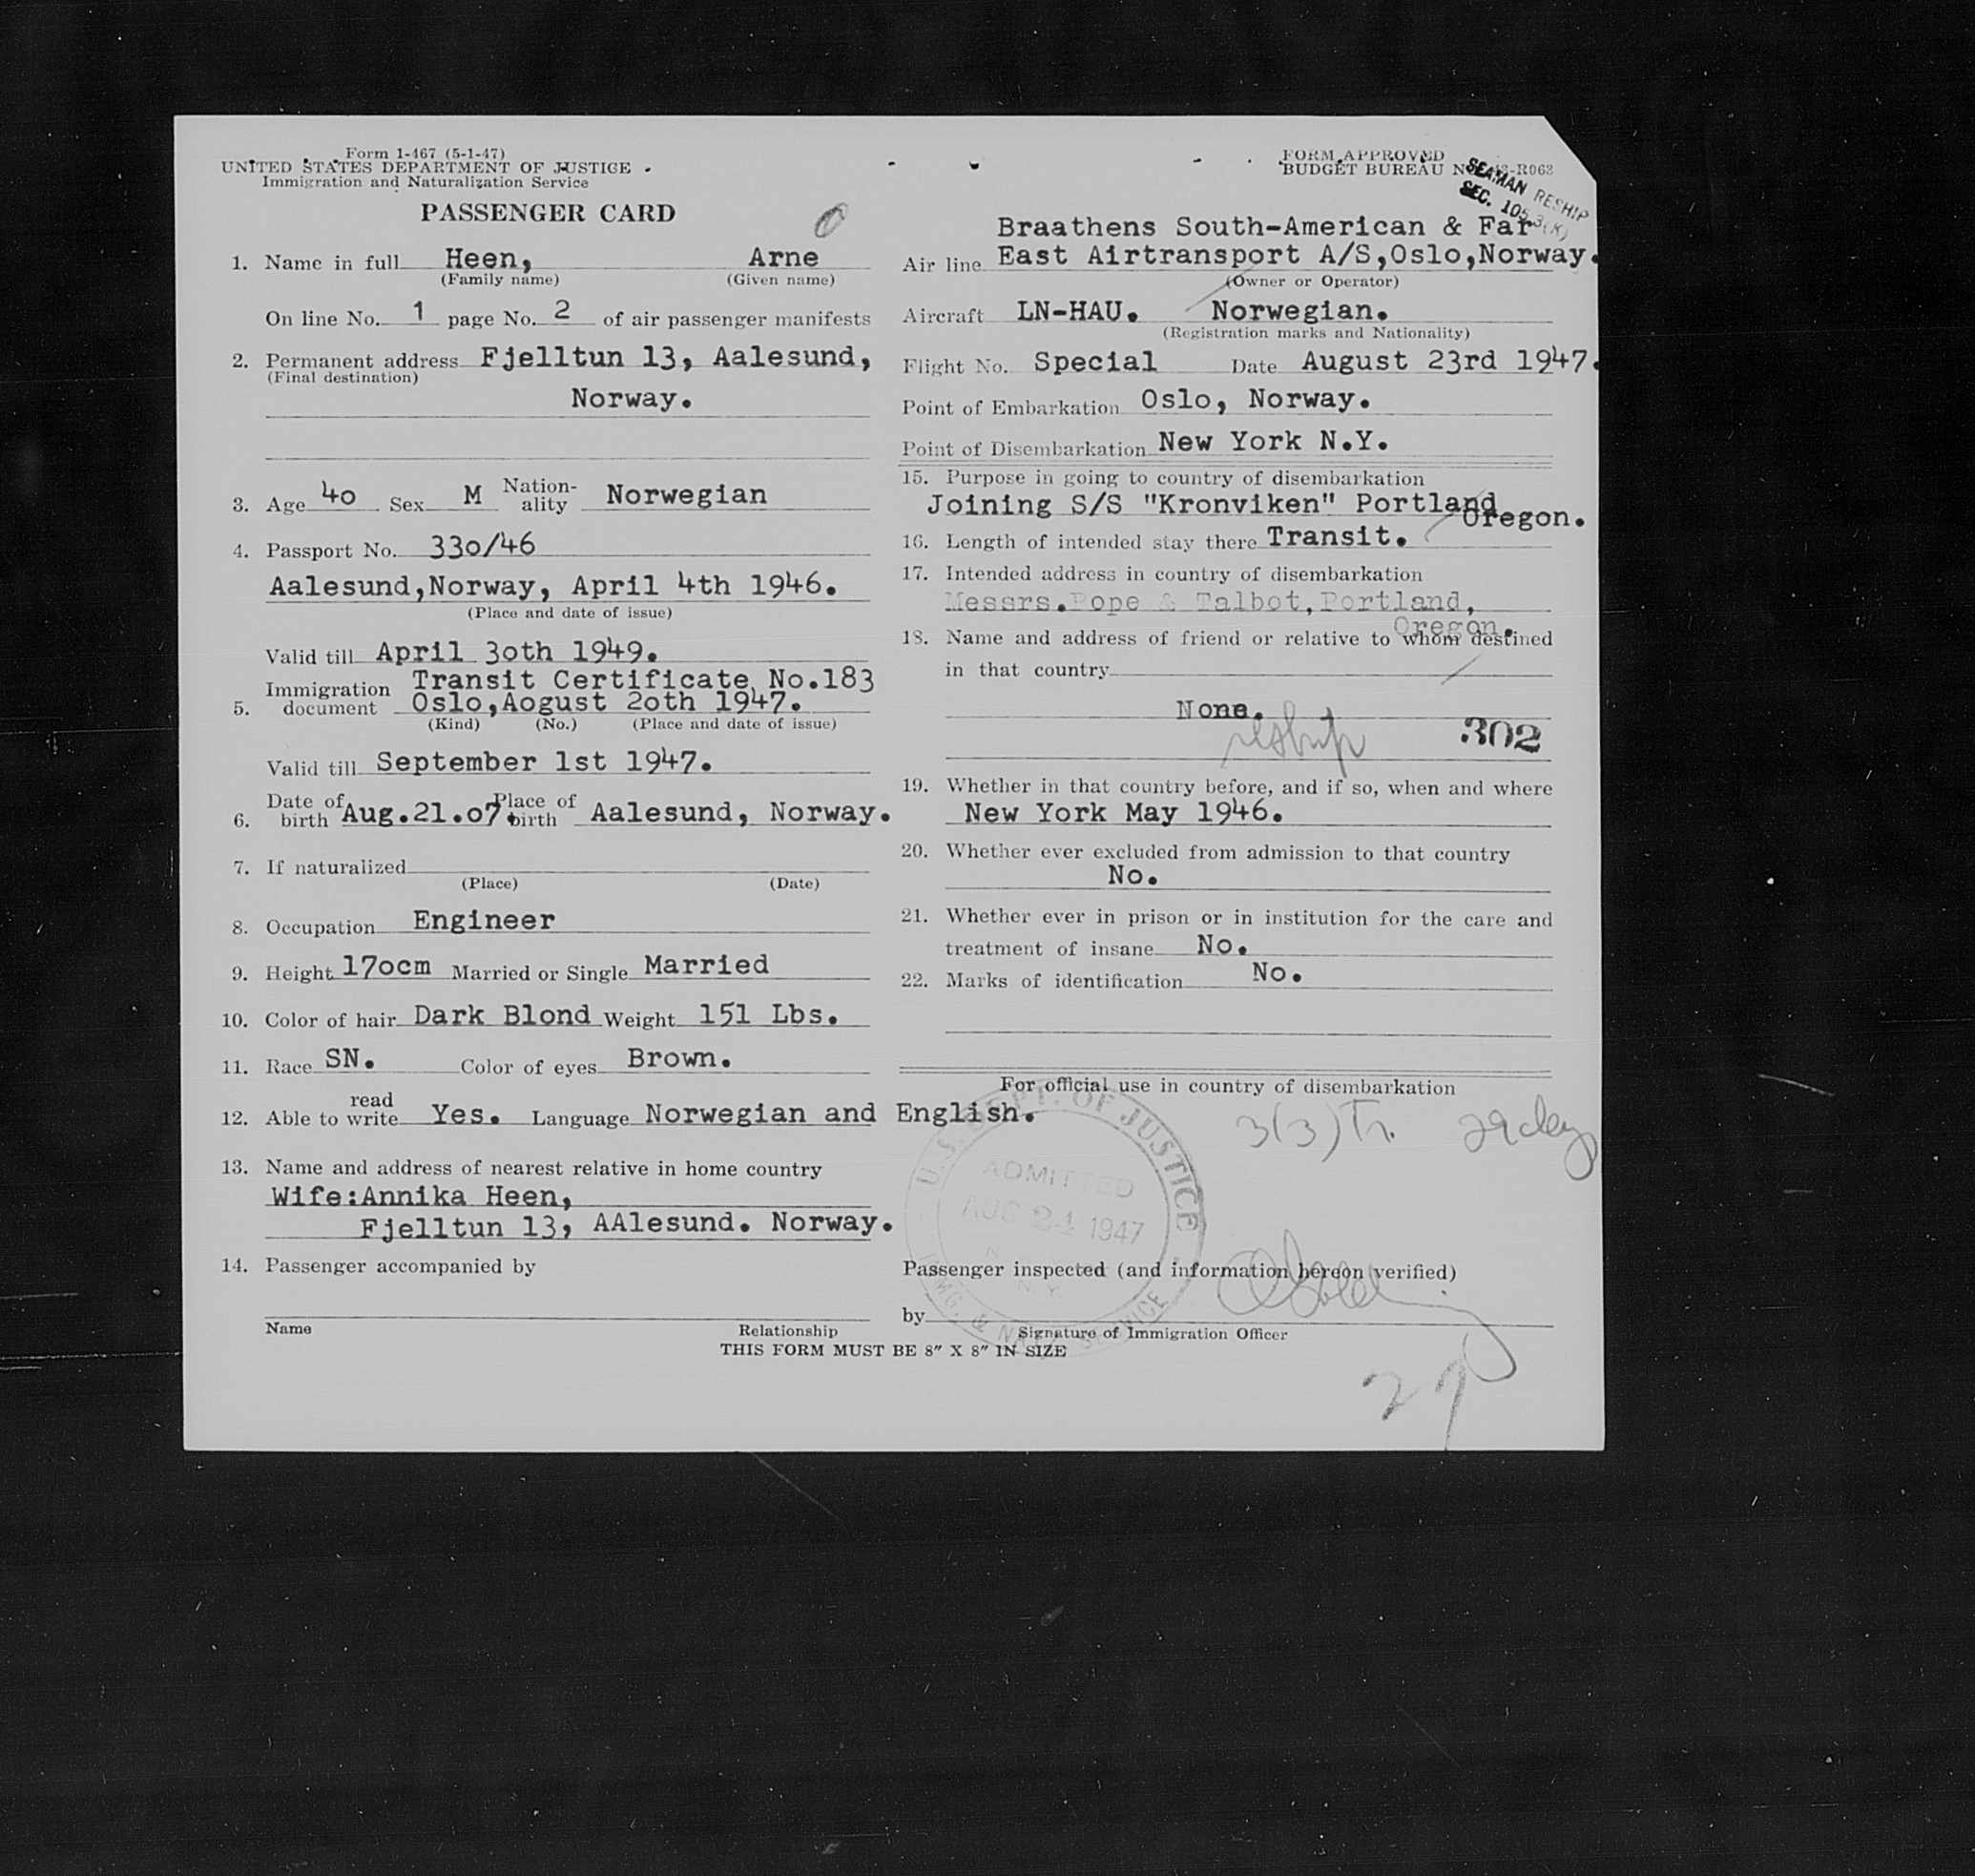 Form 1-467 (5-1-47)
UNITED STATES DEPARTMENT OF JUSTICE
Immigration and Naturalization Service
PASSENGER CARD
1. Name in full Heen, Arne
(Family name) (Given name)
On line No. 1 page No. 2 of air passenger manifests
2. Permanent address Fjelltun 13, Aalesund,
(Final destination)
Norway.
3. Age 4o Sex M Nation-ality Norwegian
4. Passport No. 33o/46
Aalesund,Norway, April 4th 1946.
(Place and date of issue)
Valid till April 3oth 1949.
5. Immigration document Transit Certificate No.183
Oslo,Aogust 2oth 1947.
(Kind) (No.) (Place and date of issue)
Valid till September 1st 1947.
6. Date of birth Aug.21.o7. Place of birth Aalesund, Norway.
7. If naturalized
(Place) (Date)
8. Occupation Engineer
9. Height 17ocm Married or Single Married
10. Color of hair Dark Blond Weight 151 Lbs.
11. Race SN. Color of eyes Brown.
12. Able to read write Yes. Language Norwegian and English.
13. Name and address of nearest relative in home country
Wife:Annika Heen,
Fjelltun 13, AAlesund. Norway.
14. Passenger accompanied by
Name Relationship
THIS FORM MUST BE 8" X 8" IN SIZE
FORM APPROVED
BUDGET BUREAU -R063
SEAMAN RESHIP
SEC. 105.3(K)
Braathens South-American & Far
Air line East Airtransport A/S,Oslo,Norway.
(Owner or Operator)
Aircraft LN-HAU. Norwegian.
(Registration marks and Nationality)
Flight No. Special Date August 23rd 1947.
Point of Embarkation Oslo, Norway.
Point of Disembarkation New York N.Y.
15. Purpose in going to country of disembarkation
Joining S/S "Kronviken" Portland
Oregon.
16. Length of intended stay there Transit.
17. Intended address in country of disembarkation
Messrs.Pope & Talbot,Portland,
Oregon.
18. Name and address of friend or relative to whom destined
in that country
None.
reship
302
19. Whether in that country before, and if so, when and where
New York May 1946.
20. Whether ever excluded from admission to that country
No.
21. Whether ever in prison or in institution for the care and
treatment of insane No.
22. Marks of identification No.
For official use in country of disembarkation
3(3) Tr. 29 day
U.S. DEPT. OF JUSTICE
ADMITTED
AUG 24 1947
N.Y.
IMG. & NAT. SERVICE
Passenger inspected (and information hereon verified)
by
Signature of Immigration Officer